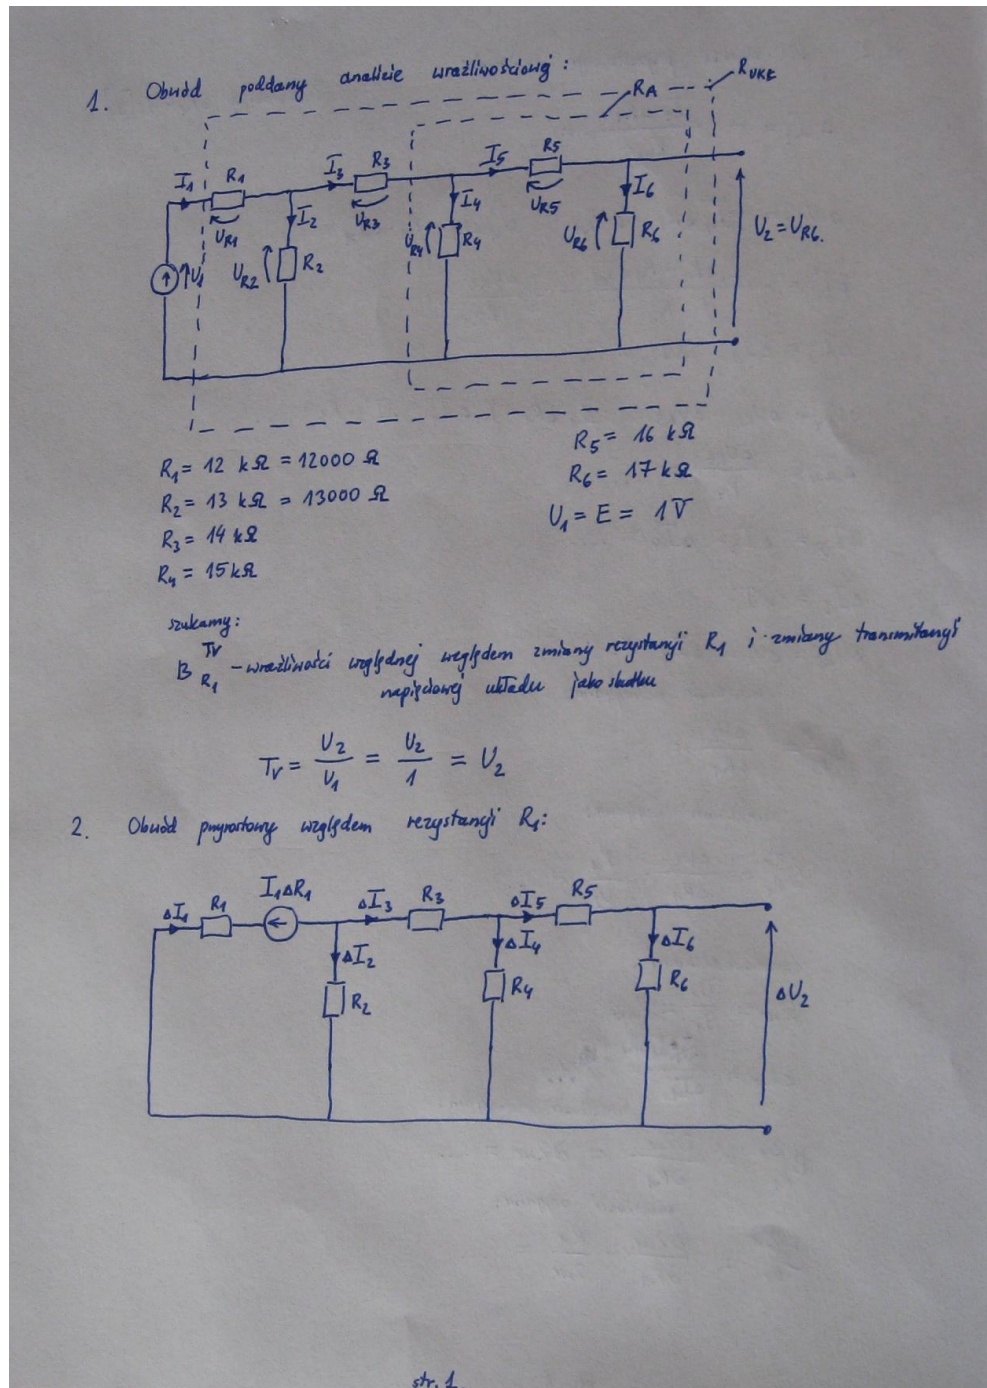 1. Obwód poddany analizie wrażliwościowej:
R_A
R_UKŁ
I1 R1 I3 R3 I5 R5
U_R1 I2 U_R3 I4 U_R5 I6
U1 U_R2 R2 U_R4 R4 U_R6 R6 U2 = U_R6.
R1 = 12 kΩ = 12000 Ω
R2 = 13 kΩ = 13000 Ω
R3 = 14 kΩ
R4 = 15 kΩ
R5 = 16 kΩ
R6 = 17 kΩ
U1 = E = 1V
szukamy:
B^Tv_R1 - wrażliwości względnej względem zmiany rezystancji R1 i zmiany transmitancji
napięciowej układu jako skutku
Tv = U2/U1 = U2/1 = U2
2. Obwód przyrostowy względem rezystancji R1:
ΔI1 R1 I1ΔR1 ΔI3 R3 ΔI5 R5
ΔI2 ΔI4 ΔI6
R2 R4 R6 ΔU2
str. 1